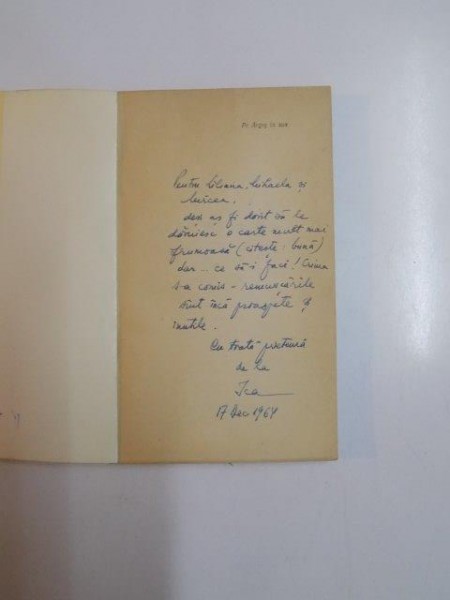 Pe Argeş în sus
Pentru Liliana, Mihaela şi
Mircea,
deşi aş fi dorit să le
dăruiesc o carte mult mai
frumoasă (citeşte: bună)
dar... ce să-i faci! Crima
s-a comis - remuşcările
sînt încă proaspete şi
inutile.
Cu toată prietenia
de la
Ica
17 Dec 1964